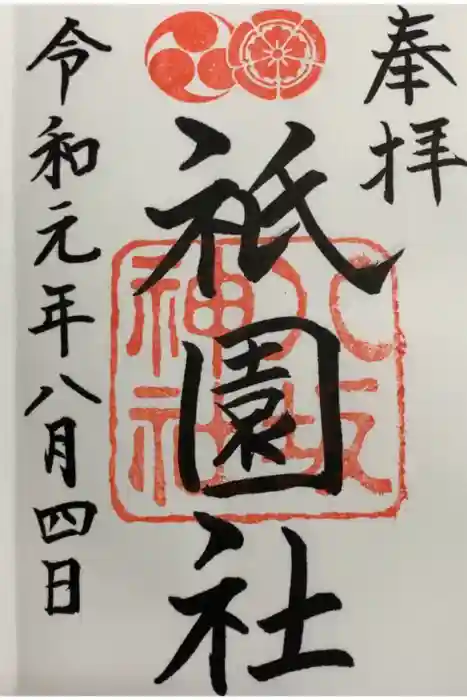 奉拝
祇園社
八坂神社
令和元年八月四日